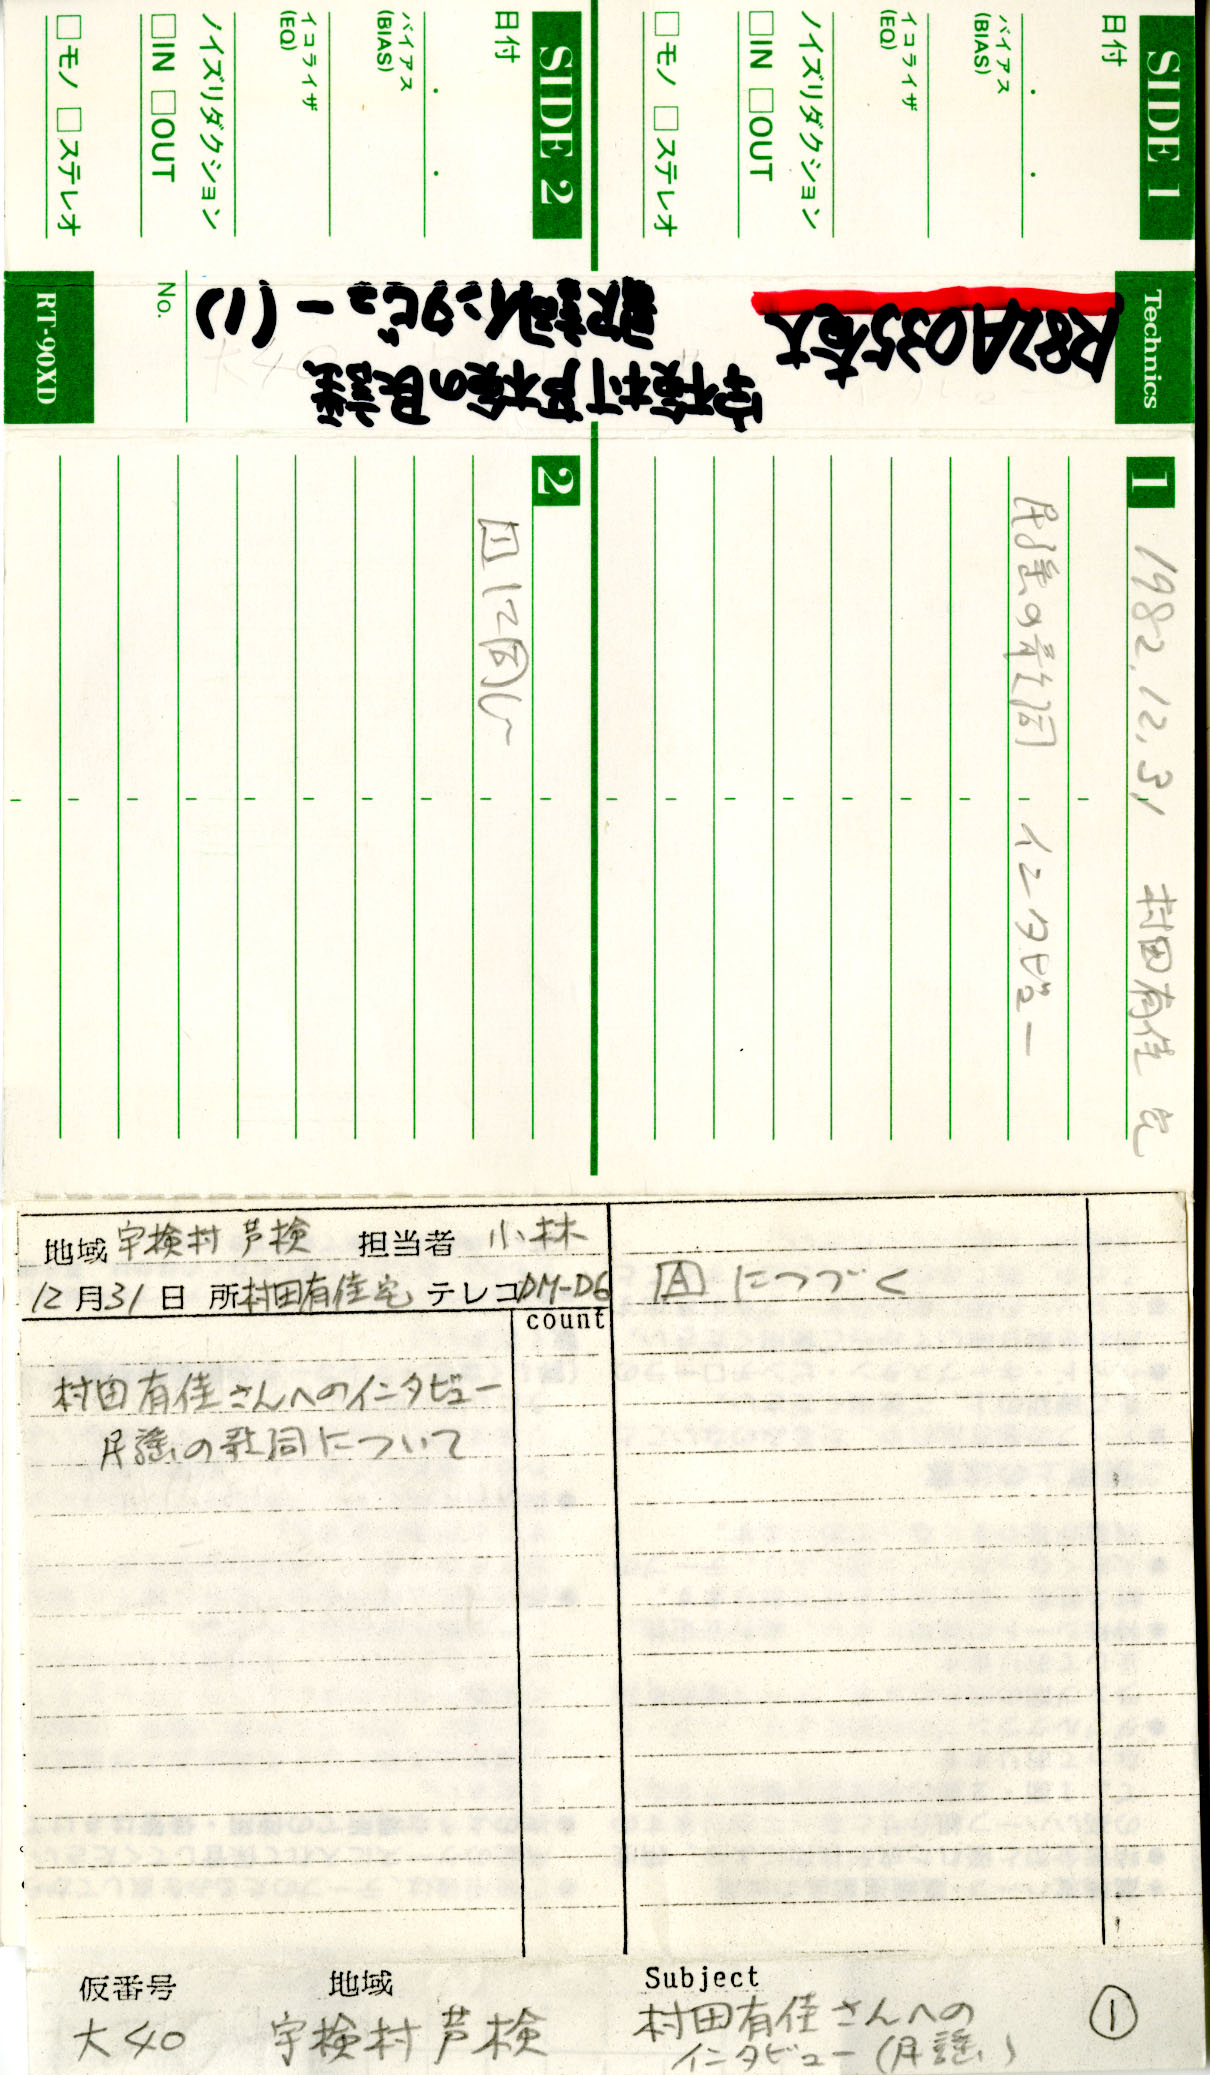 SIDE 1
日付
・　・
バイアス
(BIAS)
イコライザ
(EQ)
ノイズリダクション
□IN □OUT
□モノ □ステレオ
SIDE 2
日付
・　・
バイアス
(BIAS)
イコライザ
(EQ)
ノイズリダクション
□IN □OUT
□モノ □ステレオ
Technics
R82A035奄大
宇検村芦検の民謡
歌詞インタビュー(1)
No.
RT-90XD
1
1982.12.31 村田有佳宅
民謡の歌詞 インタビュー
2
1に同じ
地域 宇検村 芦検 担当者 小林
12月31日 所 村田有佳宅 テレコ DM-D6
count
村田有佳さんへのインタビュー
民謡の歌詞について
A につづく
仮番号 地域 Subject
大40 宇検村 芦検 村田有佳さんへの
インタビュー(民謡)
①